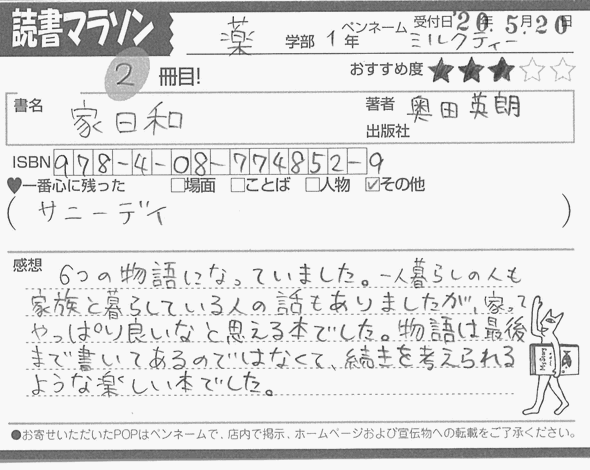 読書マラソン
薬 学部 1年 ペンネーム ミルクティー 受付日'20年 5月20日
2 冊目! おすすめ度 ★★★☆☆
書名 家日和 著者 奥田英朗
出版社
ISBN 978-4-08-774852-9
♥一番心に残った □場面 □ことば □人物 ☑その他
( サニーデイ )
感想 6つの物語になっていました。一人暮らしの人も
家族と暮らしている人の話もありましたが、家って
やっぱり良いなと思える本でした。物語は最後
まで書いてあるのではなくて、続きを考えられる
ような楽しい本でした。
●お寄せいただいたPOPはペンネームで、店内で掲示、ホームページおよび宣伝物への転載をご了承ください。